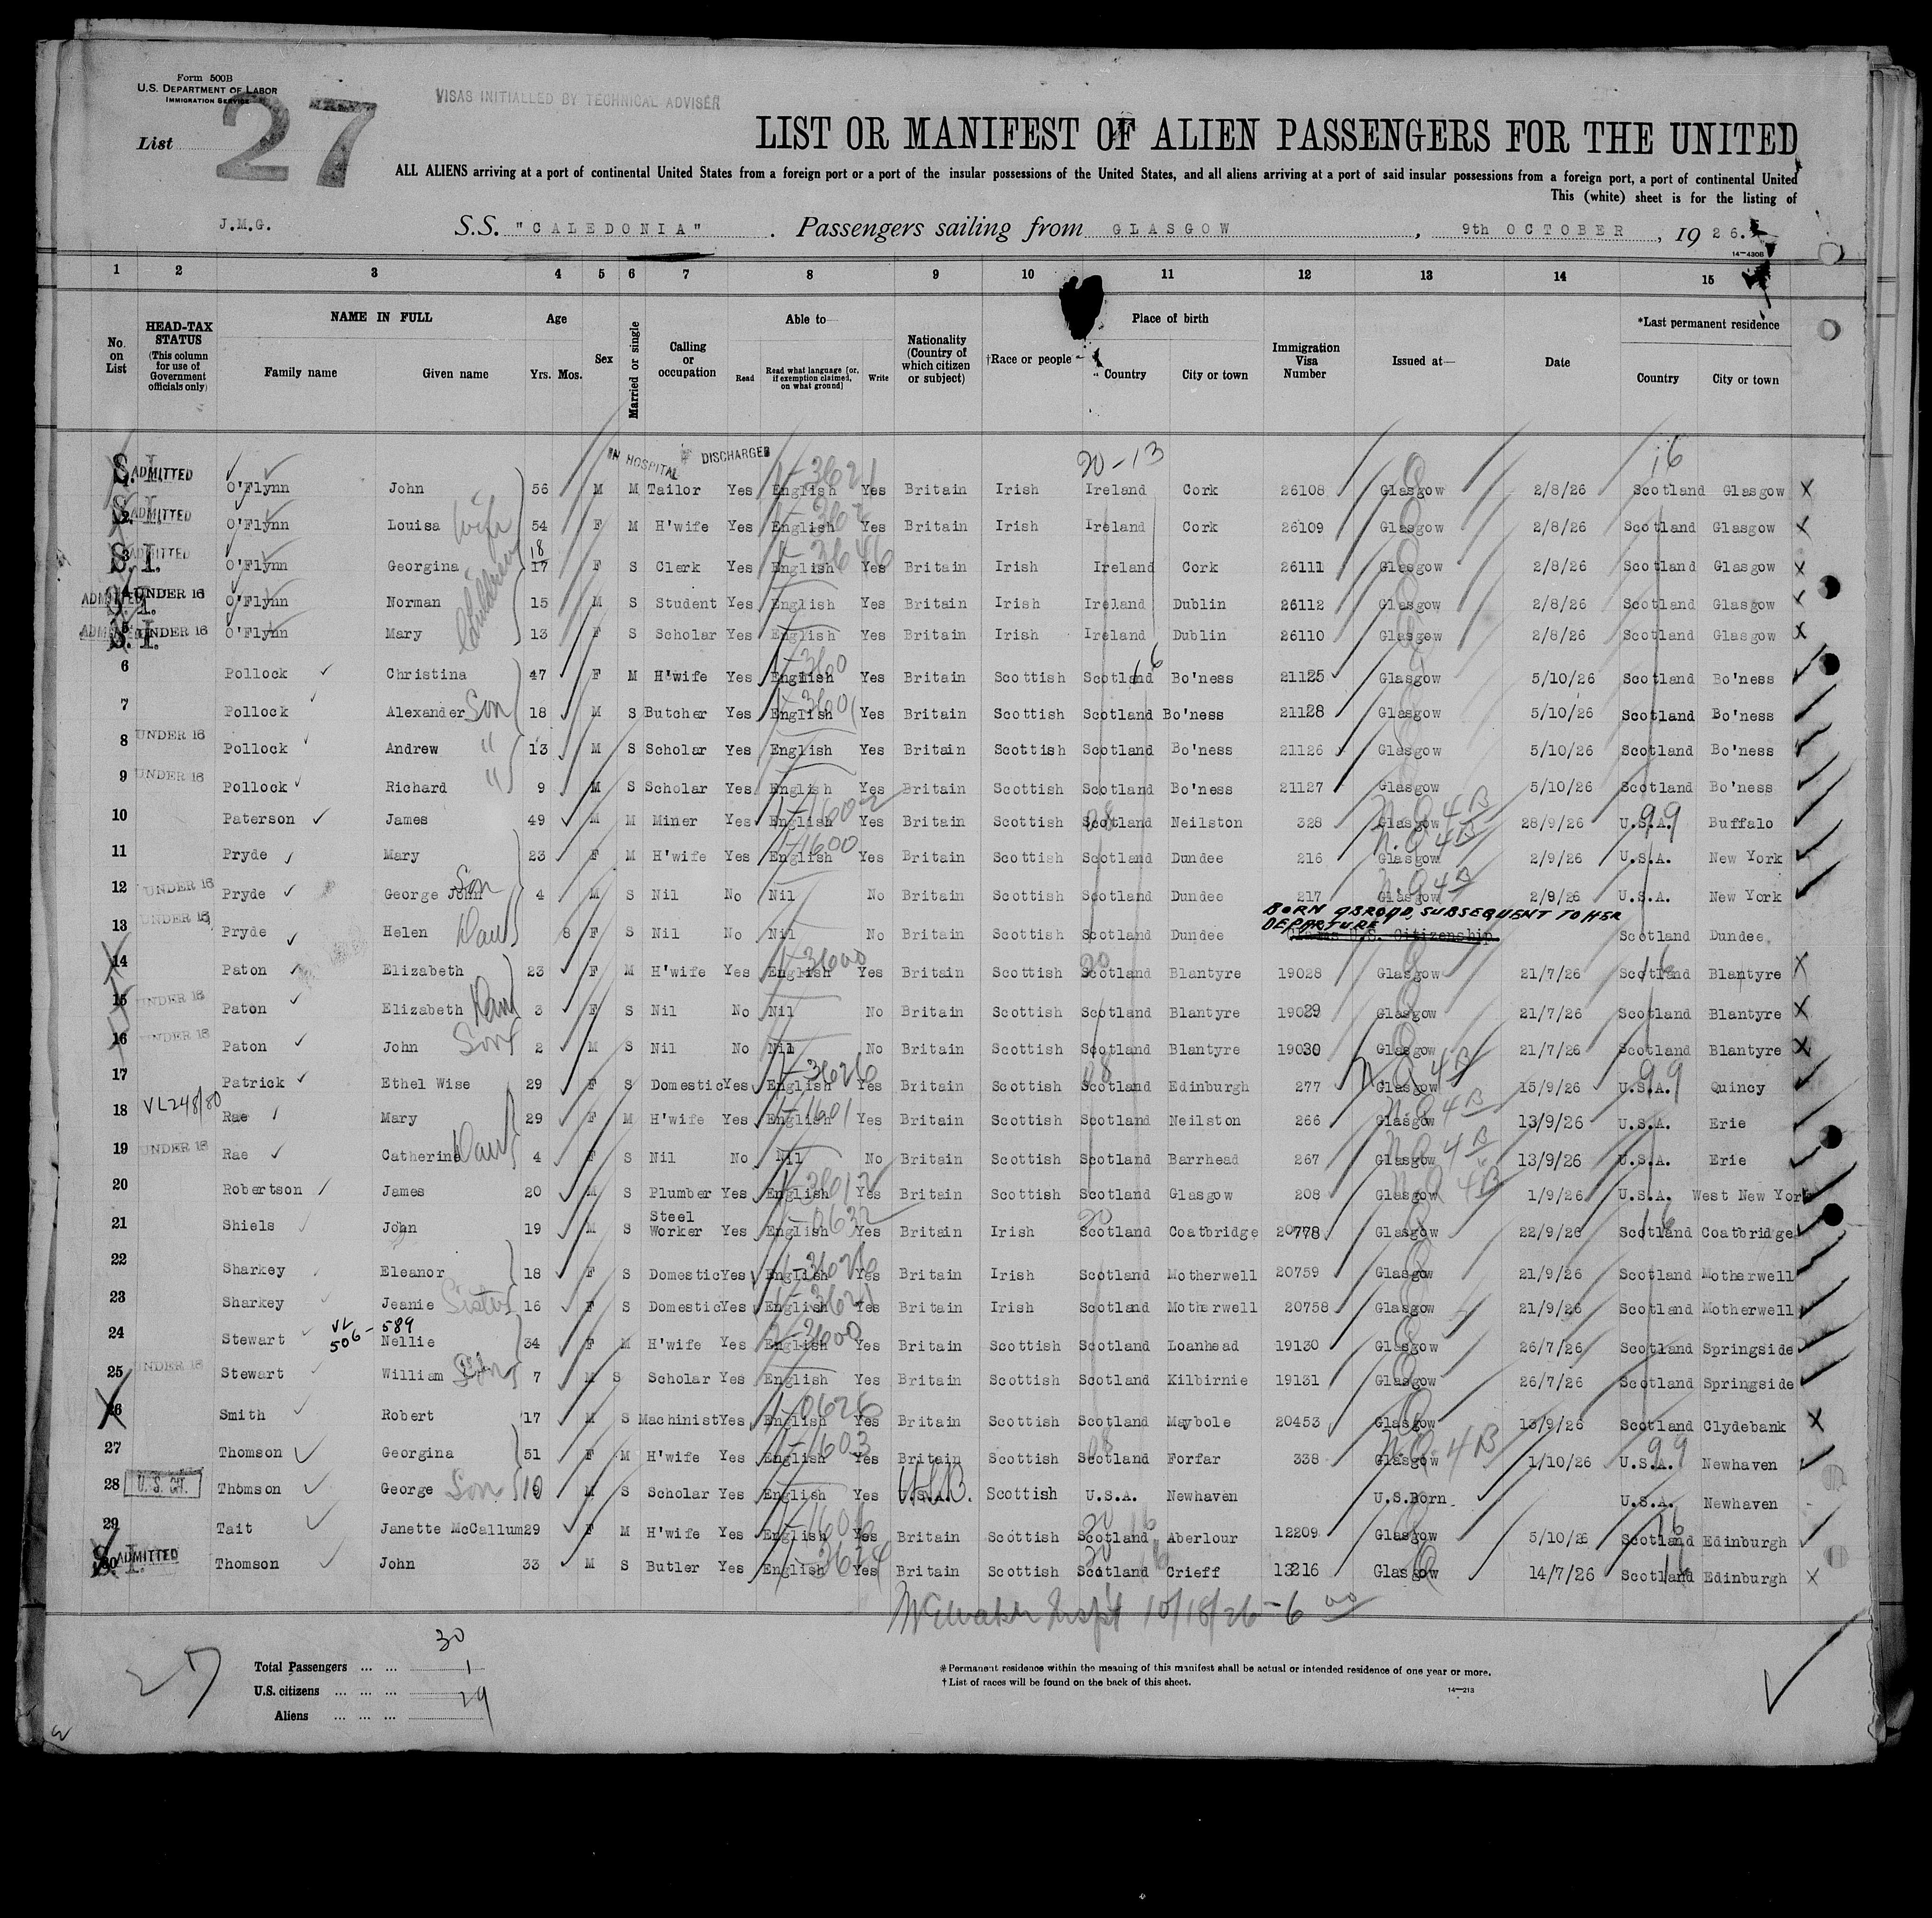 Form 500B
U.S. DEPARTMENT OF LABOR
IMMIGRATION SERVICE
VISAS INITIALLED BY TECHNICAL ADVISER
List 27
LIST OR MANIFEST OF ALIEN PASSENGERS FOR THE UNITED
ALL ALIENS arriving at a port of continental United States from a foreign port or a port of the insular possessions of the United States, and all aliens arriving at a port of said insular possessions from a foreign port, a port of continental United
This (white) sheet is for the listing of
J.M.G. S.S. "CALEDONIA" . Passengers sailing from GLASGOW , 9th OCTOBER , 19 26.
14-430B
1 2 3 4 5 6 7 8 9 10 11 12 13 14 15
No. on List
HEAD-TAX STATUS (This column for use of Government officials only)
NAME IN FULL Family name Given name
Age Yrs. Mos.
Sex
Married or single
Calling or occupation
Able to— Read Read what language [or, if exemption claimed, on what ground] Write
Nationality (Country of which citizen or subject)
†Race or people
Place of birth Country City or town
Immigration Visa Number
Issued at—
Date
*Last permanent residence Country City or town
IN HOSPITAL DISCHARGED 20-13 16
S.I. ADMITTED O'Flynn John 56 M M Tailor Yes English Yes Britain Irish Ireland Cork 26108 Glasgow 2/8/26 Scotland Glasgow X
2 S.I. ADMITTED O'Flynn Louisa wife 54 F M H'wife Yes English Yes Britain Irish Ireland Cork 26109 Glasgow 2/8/26 Scotland Glasgow X
3 S.I. ADMITTED O'Flynn Georgina 18 17 F S Clerk Yes English Yes Britain Irish Ireland Cork 26111 Glasgow 2/8/26 Scotland Glasgow X
4 S.I. ADMITTED UNDER 16 O'Flynn Norman Children 15 M S Student Yes English Yes Britain Irish Ireland Dublin 26112 Glasgow 2/8/26 Scotland Glasgow X
5 S.I. ADMITTED UNDER 16 O'Flynn Mary 13 F S Scholar Yes English Yes Britain Irish Ireland Dublin 26110 Glasgow 2/8/26 Scotland Glasgow X
6 Pollock Christina 47 F M H'wife Yes 1-3600 English Yes Britain Scottish Scotland 16 Bo'ness 21125 Glasgow 5/10/26 Scotland Bo'ness
7 Pollock Alexander Son 18 M S Butcher Yes 1-3601 English Yes Britain Scottish Scotland Bo'ness 21128 Glasgow 5/10/26 Scotland Bo'ness
8 UNDER 16 Pollock Andrew " 13 M S Scholar Yes English Yes Britain Scottish Scotland Bo'ness 21126 Glasgow 5/10/26 Scotland Bo'ness
9 UNDER 16 Pollock Richard " 9 M S Scholar Yes English Yes Britain Scottish Scotland Bo'ness 21127 Glasgow 5/10/26 Scotland Bo'ness
10 Paterson James 49 M M Miner Yes 1-1602 English Yes Britain Scottish Scotland Neilston 328 Glasgow N.Q 4B 28/9/26 U.S.A. 99 Buffalo
11 Pryde Mary 23 F M H'wife Yes 1-1600 English Yes Britain Scottish Scotland Dundee 216 Glasgow N.Q 4B 2/9/26 U.S.A. New York
12 UNDER 16 Pryde George John Son 4 M S Nil No Nil No Britain Scottish Scotland Dundee 217 Glasgow N.Q 4B 2/9/26 U.S.A. New York
BORN ABROAD, SUBSEQUENT TO HER DEPARTURE
13 UNDER 16 Pryde Helen Daur 8 F S Nil No Nil No Britain Scottish Scotland Dundee Claims U.S. Citizenship Scotland Dundee
14 Paton Elizabeth 23 F M H'wife Yes 1-3600 English Yes Britain Scottish Scotland Blantyre 19028 Glasgow 21/7/26 Scotland 16 Blantyre X
15 UNDER 16 Paton Elizabeth Daur 3 F S Nil No Nil No Britain Scottish Scotland Blantyre 19029 Glasgow 21/7/26 Scotland Blantyre X
16 UNDER 16 Paton John Son 2 M S Nil No Nil No Britain Scottish Scotland Blantyre 19030 Glasgow 21/7/26 Scotland Blantyre X
17 Patrick Ethel Wise 29 F S Domestic Yes 1-3626 English Yes Britain Scottish Scotland Edinburgh 277 Glasgow N.Q 4B 15/9/26 U.S.A. 99 Quincy
18 VL248/80 Rae Mary 29 F M H'wife Yes 1-1601 English Yes Britain Scottish Scotland Neilston 266 Glasgow N.Q 4B 13/9/26 U.S.A. Erie
19 UNDER 16 Rae Catherine Daur 4 F S Nil No Nil No Britain Scottish Scotland Barrhead 267 Glasgow N.Q 4B 13/9/26 U.S.A. Erie
20 Robertson James 20 M S Plumber Yes 1-3612 English Yes Britain Scottish Scotland Glasgow 208 Glasgow N.Q 4B 1/9/26 U.S.A. West New York
21 Shiels John 19 M S Steel Worker Yes 1-0632 English Yes Britain Irish Scotland Coatbridge 20778 Glasgow 22/9/26 Scotland 16 Coatbridge
22 Sharkey Eleanor 18 F S Domestic Yes 1-3626 English Yes Britain Irish Scotland Motherwell 20759 Glasgow 21/9/26 Scotland Motherwell
23 Sharkey Jeanie Sister 16 F S Domestic Yes English Yes Britain Irish Scotland Motherwell 20758 Glasgow 21/9/26 Scotland Motherwell
24 Stewart VL 506-589 Nellie 34 F M H'wife Yes 1-3600 English Yes Britain Scottish Scotland Loanhead 19130 Glasgow 26/7/26 Scotland Springside
25 UNDER 16 Stewart William Son 7 M S Scholar Yes English Yes Britain Scottish Scotland Kilbirnie 19131 Glasgow 26/7/26 Scotland Springside
26 Smith Robert 17 M S Machinist Yes 1-0626 English Yes Britain Scottish Scotland Maybole 20453 Glasgow 13/9/26 Scotland Clydebank X
27 Thomson Georgina 51 F M H'wife Yes 1-1603 English Yes Britain Scottish Scotland Forfar 338 Glasgow N.Q. 4B 1/10/26 U.S.A. 99 Newhaven
28 U.S. CIT. Thomson George Son 10 M S Scholar Yes English Yes U.S.A. Scottish U.S.A. Newhaven U.S.Born U.S.A. Newhaven
29 Tait Janette McCallum 29 F M H'wife Yes English Yes Britain Scottish Scotland Aberlour 12209 Glasgow 5/10/26 Scotland 16 Edinburgh
30 S.I. ADMITTED Thomson John 33 M S Butler Yes English Yes Britain Scottish Scotland Crieff 13216 Glasgow 14/7/26 Scotland 16 Edinburgh X
10/18/26-6 00
27
Total Passengers ... ... 30
U.S. citizens ... ... ... 1
Aliens ... ... ... 29
*Permanent residence within the meaning of this manifest shall be actual or intended residence of one year or more.
†List of races will be found on the back of this sheet.
14-213